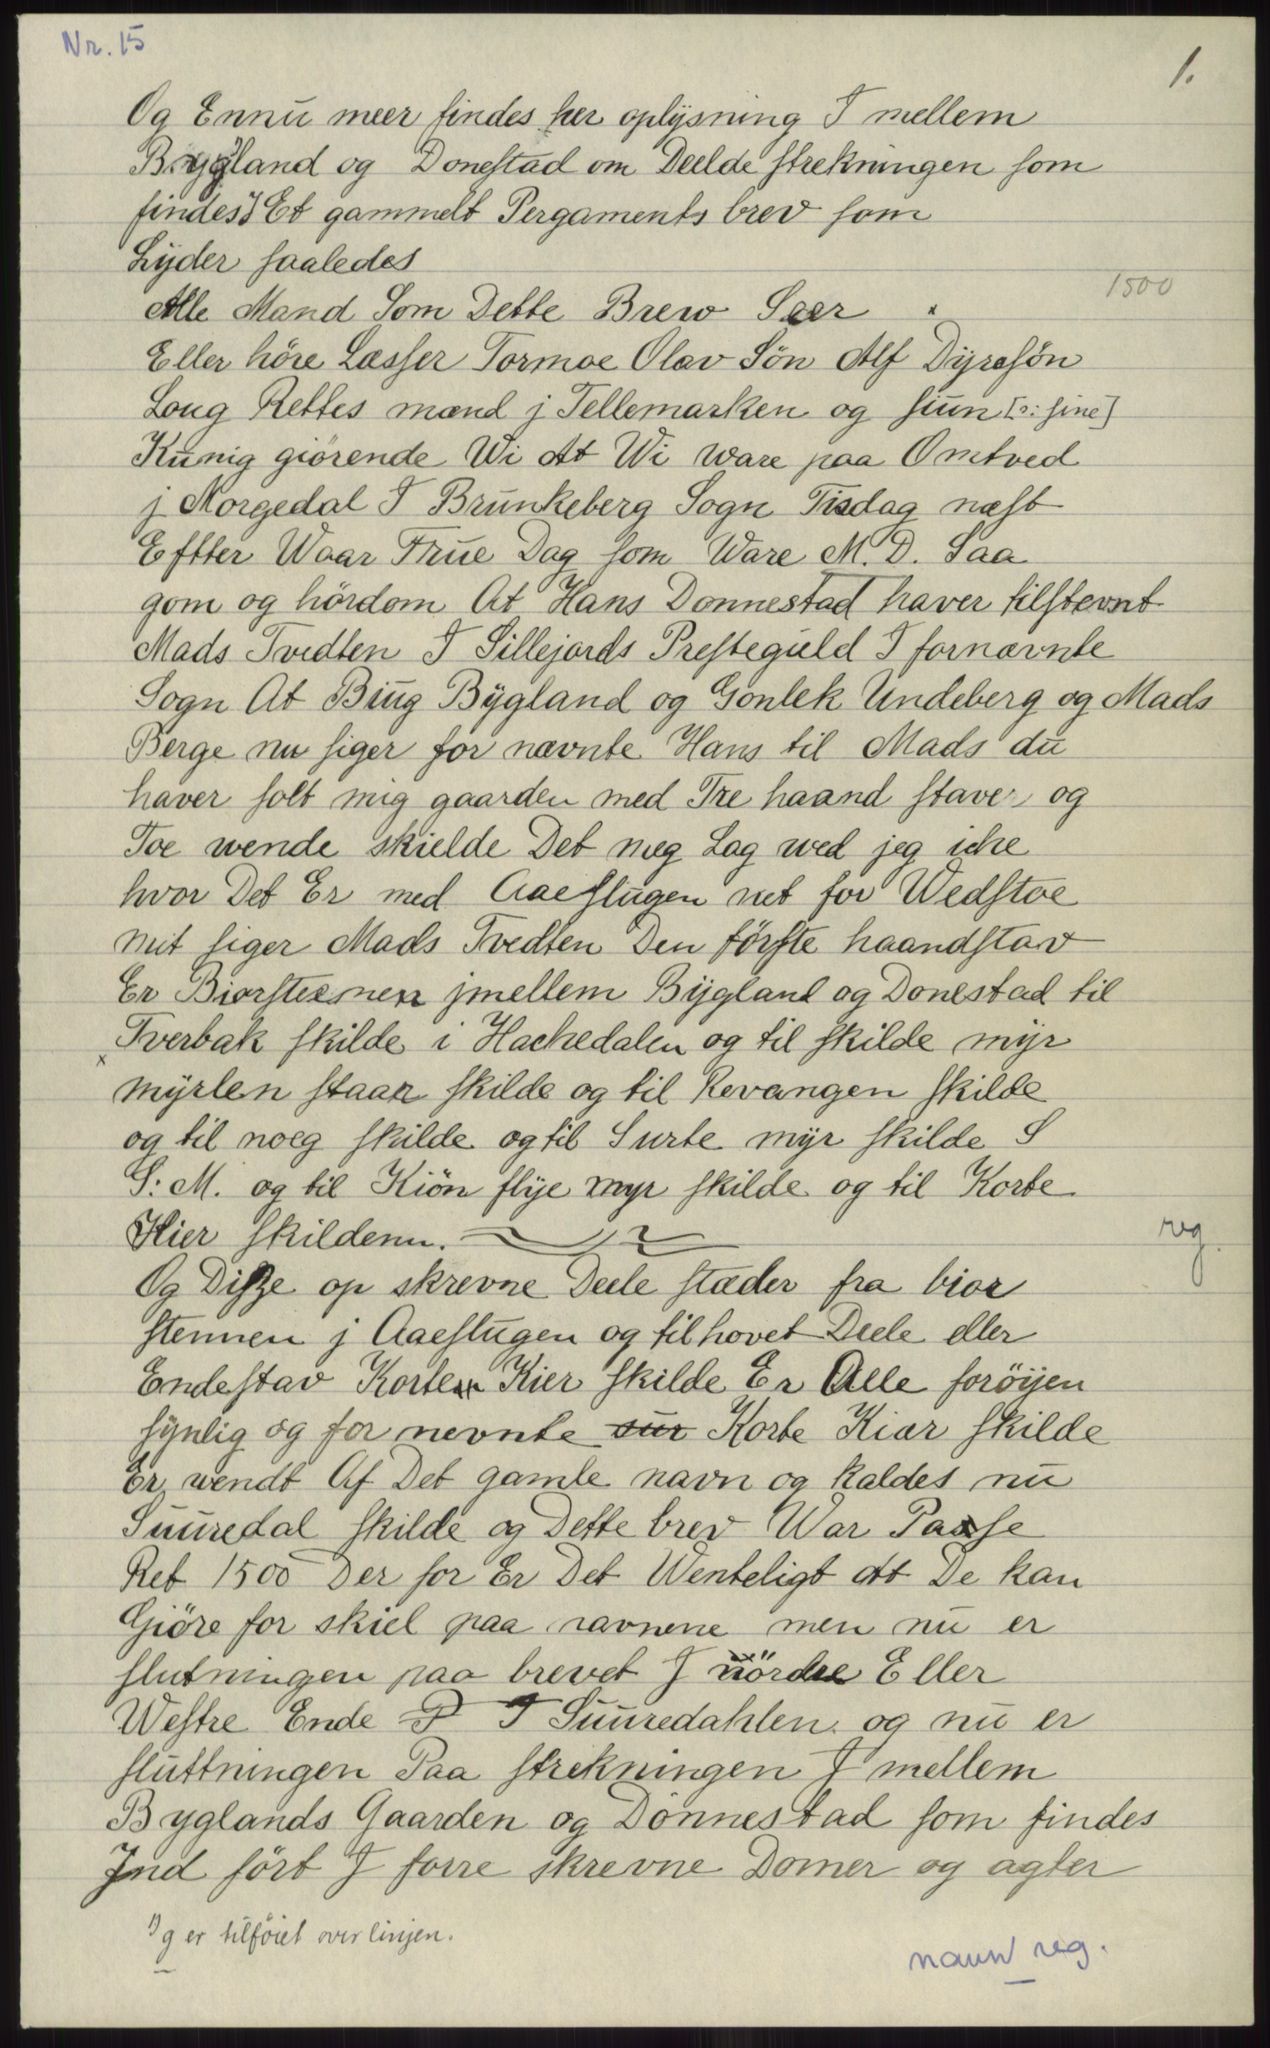 Nr. 15
1.
Og Ennu meer findes her oplÿsning I mellem
Bÿgland og Donestad om Deelde strekningen som
findes I Et gammelt Pergaments brev som
Lÿder saaledes
1500
Alle Mand Som Dette Brew Seer
Eller höre Læsser Tormoe Olav Sön Alf Dÿresön
Loug Rettes mænd j Tellemarken og siun [ɔ: sine]
Kunig giörende Wi At Wi ware paa Omtved
j Morgedal I Brunkeberg Sogn Tisdag næst
Eftter Waar Frue Dag som Ware M. D. Saa
gom og hördom At Hans Donnestad haver tilstevnt
Mads Tvedten I Sillejords Prestegield I fornævnte
Sogn At Biug Bÿgland og Gonlek Undeberg og Mads
Berge nu siger for nævnte Hans til Mads du
haver solt mig gaarden med Tre haand staver og
Toe wende skielde Det meg Lag wed jeg iche
hvor Det Er med Aaestugen net for Wedstoe
mit siger Mads Tvedten Den förste haandstav
Er Biorsteenen jmellem Bÿgland og Donestad til
Tverbak skilde i Hachedalen og til skilde mÿr
x mÿrlen staar skilde og til Revangen skilde
og til noeg skilde og til Surte mÿr skilde S
S: M. og til Kiön flÿe myr skilde og til Korte
Kier skildenn.
reg.
Og Disze op skrevne Deele stæder fra bior
stennen j Aaestugen og til hovet Deele eller
Endestav Korte Kier skilde Er Alle forøijen
sÿnlig og for nevnte sur Korte Kiær skilde
Er wendt Af Det gamle navn og kaldes nu
Suuredal skilde og Dette brev War Passe
Ret 1500 Der for Er Det Wenteligt At De kan
Giöre for skiel paa navnene men nu er
slutningen paa brevet I nördre Eller
Westre Ende P I Suuredahlen og nu er
sluttningen Paa strekningen I mellem
Byglands Gaarden og Donnestad som findes
Ind fört I forre skrevne Domer og agter
1) g er tilföiet over linjen.
navn reg.